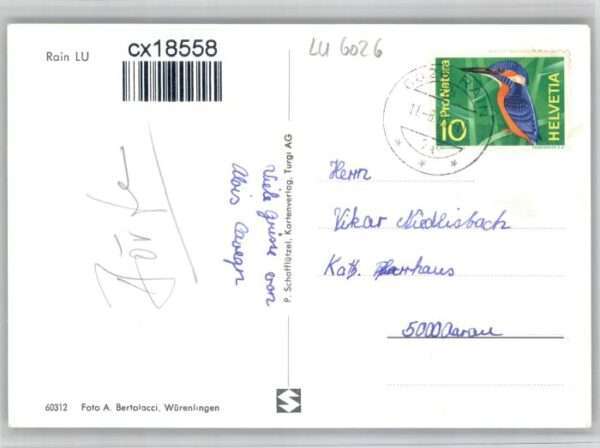 Rain LU
cx18558
LU 6026
Pro Natura
10
HELVETIA
Herrn
Vikar Niedlisbach
Kath. Pfarrhaus
5000 Aarau
Viele Grüsse von
Alois
P. Schafflützel, Kartenverlag, Turgi AG
60312 Foto A. Bertolacci, Würenlingen